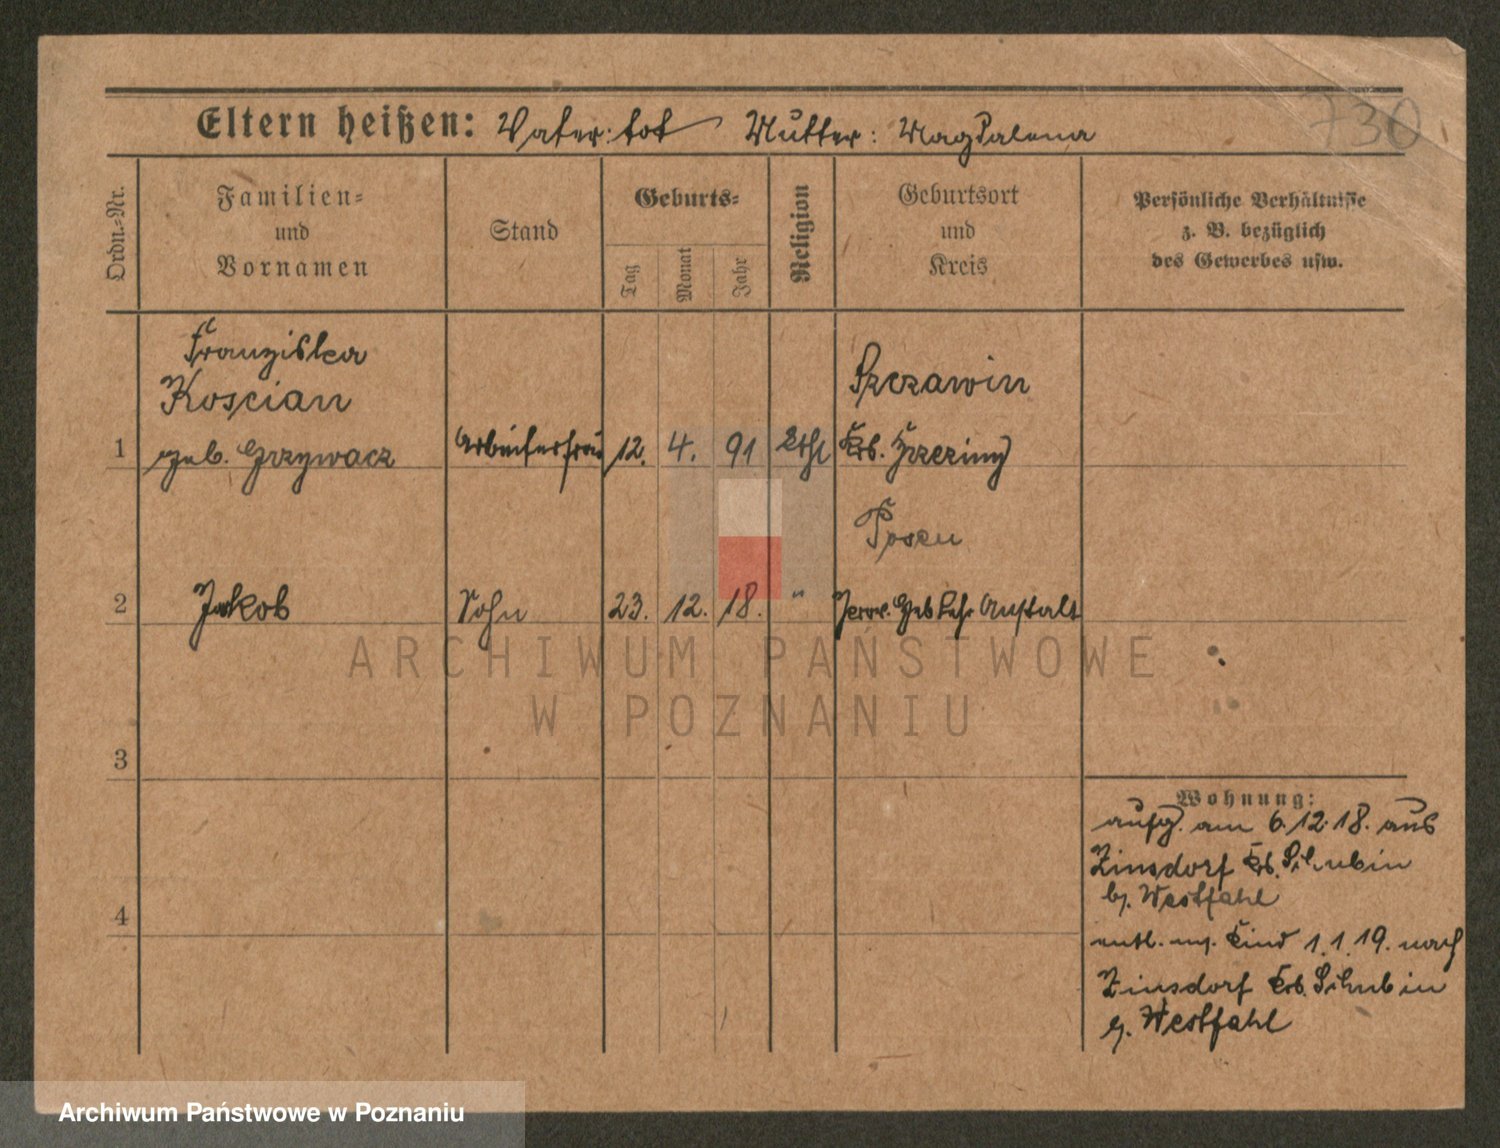 730
Eltern heißen: Vater: tot Mutter: Magdalena
Ordn.-Nr.
Familien-
und
Vornamen
Stand
Geburts-
Tag
Monat
Jahr
Religion
Geburtsort
und
Kreis
Persönliche Verhältnisse
z. B. bezüglich
des Gewerbes usw.
Franziska
Koscian
1 geb. Grzywacz Arbeiterfrau 12. 4. 91 kthl
Szczawin
Krs. Brzeziny
Posen
2 Jakob Sohn 23. 12. 18. " Prov. Heb Lehr Anstalt
3
4
Wohnung:
aufg. am 6.12.18. aus
Zinsdorf Krs. Schubin
b/. Westfahl
entl. m/. Kind 1.1.19. nach
Zinsdorf Krs. Schubin
b/. Westfahl
ARCHIWUM PAŃSTWOWE
W POZNANIU
Archiwum Państwowe w Poznaniu